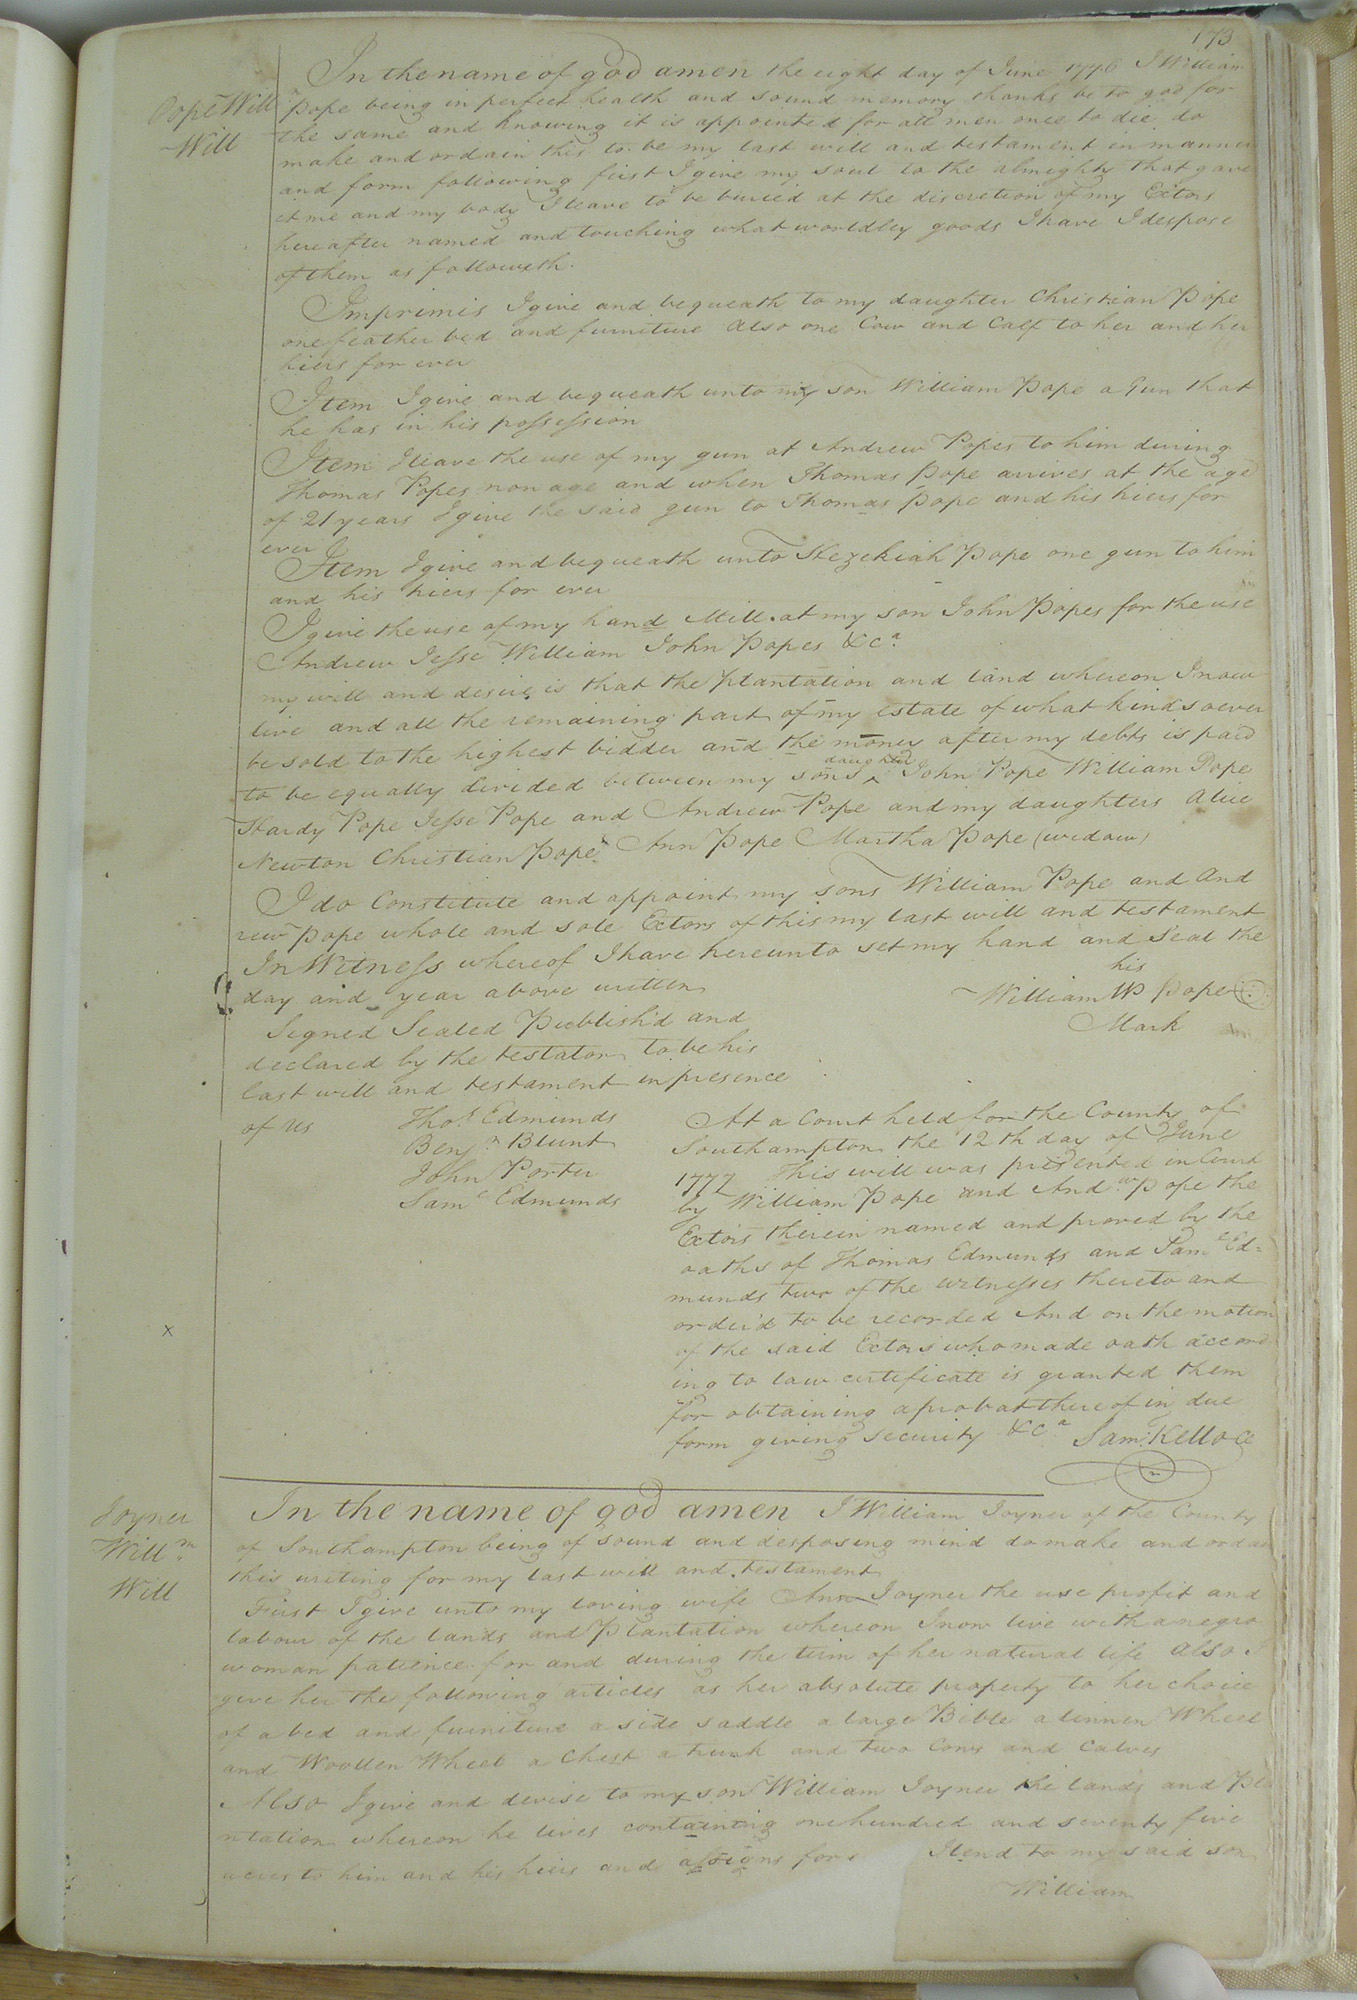 173
In the name of god amen the eight day of June 1776 I William
Pope Will^m
Will
Pope being in perfect health and sound memory thanks be to god for
the same and knowing it is appointed for all men once to die do
make and ordain this to be my last will and testament in manner
and form following first I give my soul to the almighty that gave
it me and my body I leave to be buried at the discretion of my Extors
hereafter named and touching what worldley goods I have I despose
of them as followeth.
Imprimis I give and bequeath to my daughter Christian Pope
one feather bed and furniture Also one Cow and Calf to her and her
hiers for ever
Item I give and bequeath unto my son William Pope a Gun that
he has in his possession
Item I leave the use of my gun at Andrew Popes to him during
Thomas Popes non age and when Thomas Pope arrives at the age
of 21 years I give the said gun to Thomas Pope and his hiers for
ever
Item I give and bequeath unto Hezekiah Pope one gun to him
and his hiers for ever
I give the use of my hand Mill at my son John Popes for the use
Andrew Jesse William John Popes &c^a
my will and desire is that the plantation and land whereon I now
live and all the remaining part of my estate of what kind soever
be sold to the highest bidder and the money after my debts is paid
to be equally divided between my sons ^ daughter John Pope William Pope
Hardy Pope Jesse Pope and Andrew Pope and my daughters Alice
Newton Christian Pope Ann Pope Martha Pope (widow)
I do Constitute and appoint my sons William Pope and And
rew Pope whole and sole Extors of this my last will and testament
In Witness whereof I have hereunto set my hand and seal the
day and year above written
his
William W Pope
Mark
Signed Sealed Publish'd and
declared by the testator to be his
last will and testament in presence
of us
Tho^s Edmunds
Benj^n Blunt
John Porter
Sam^l Edmunds
At a Court held for the County of
Southampton the 12th day of June
1777 This will was presented in Court
by William Pope and And^w Pope the
Extors therein named and proved by the
oaths of Thomas Edmunds and Sam^l Ed=
munds two of the witnesses thereto and
order'd to be recorded And on the motion
of the said Extors who made oath accord
ing to law certificate is granted them
for obtaining a probat thereof in due
form giving security &c^a Sam^l Kello CC
x
Joyner
Will^m
Will
In the name of god amen I William Joyner of the County
of Southampton being of sound and desposing mind do make and ordain
this writing for my last will and testament
First I give unto my loving wife Ann Joyner the use profit and
labour of the lands and Plantation whereon I now live with a negro
woman patience for and during the term of her natural life Also I
give her the following articles as her absolute property to her choice
of a bed and furniture a side saddle a large Bible a linnen Wheel
and Woollen Wheel a Chest a trunk and two Cows and Calves
Also I give and devise to my son William Joyner the lands and Pla
ntation whereon he lives containing one hundred and seventy five
acres to him and his hiers and assigns for I lend to my said son
William